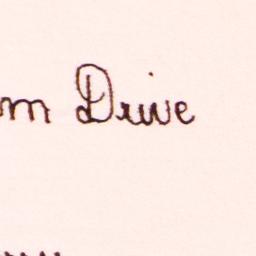 om Drive